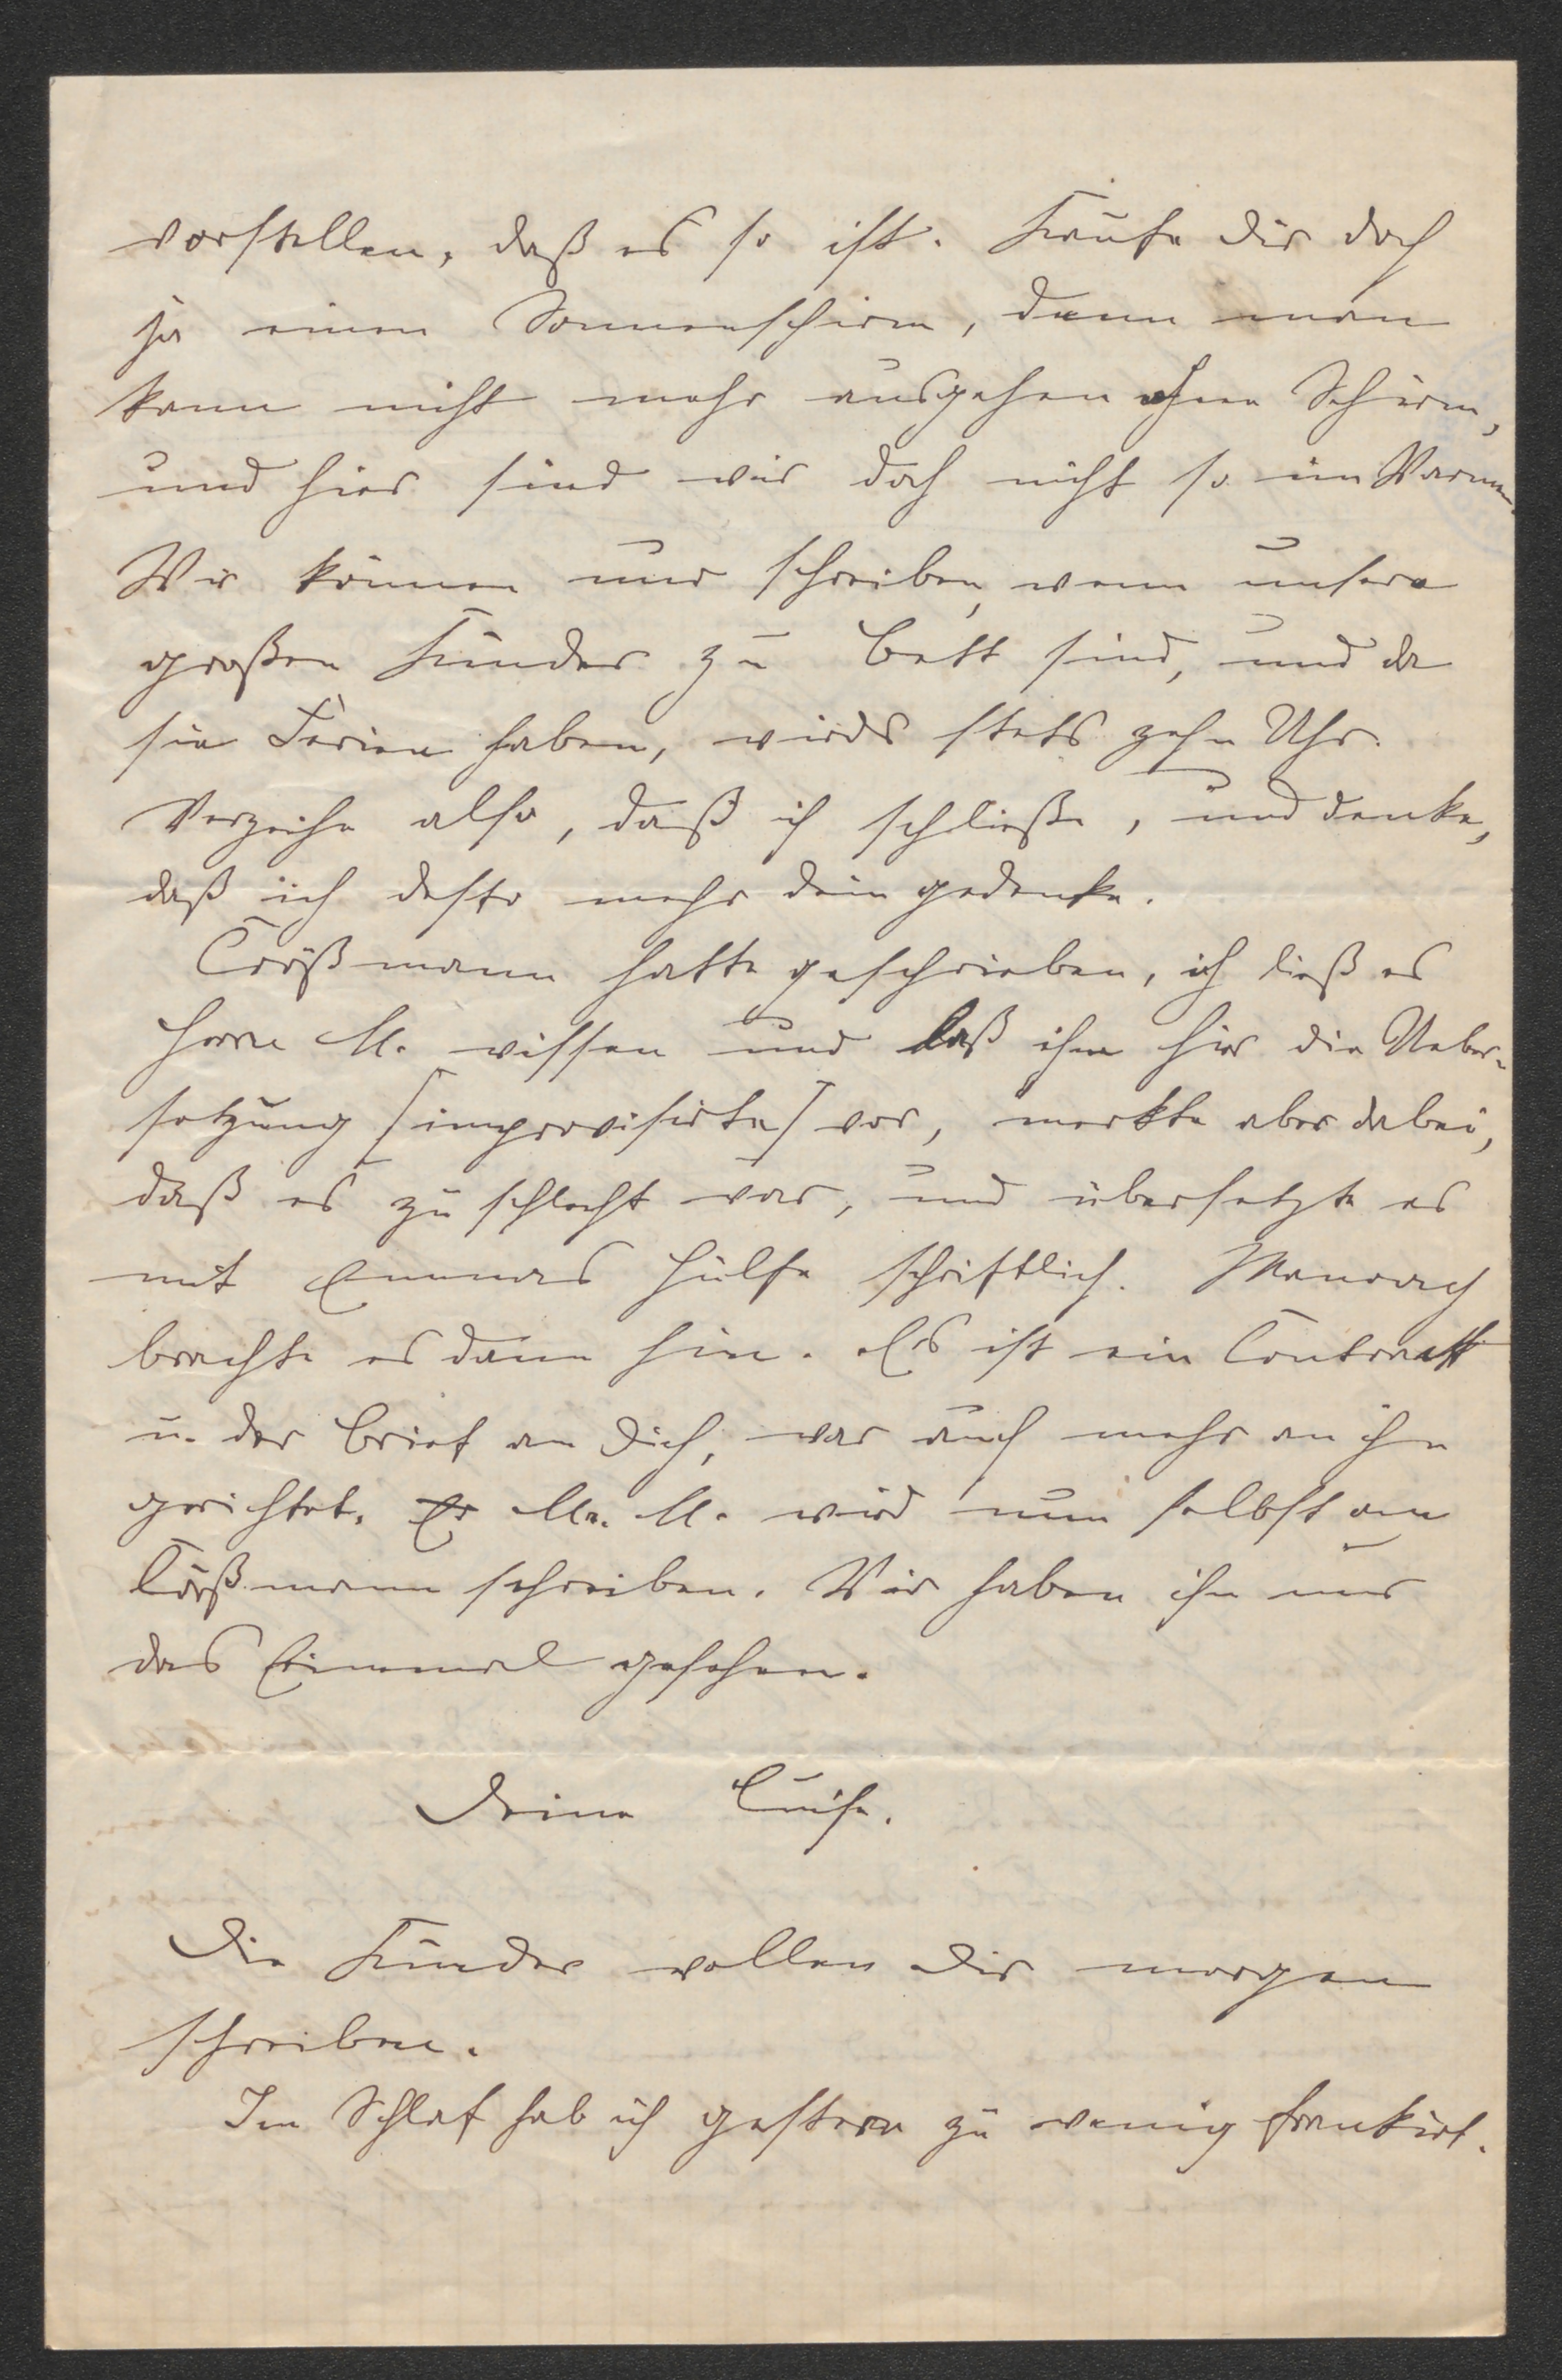 vorstellen, daß es so ist. Kaufe dir doch
ja einen Sonnenschirm, denn man
kann nicht mehr ausgehen ohne Schirm,
und hier sind wir doch nicht so im Warmen.
Wir können nur schreiben, wenn unsere
großen Kinder zu Bett sind, und da
sie Ferien haben, wirds stets zehn Uhr.
Verzeihe also, daß ich schließe, und denke,
daß ich desto mehr dein gedenke.
Croßmann hatte geschrieben, ich ließ es
Herrn M. wissen und las ihm hier die Ueber-
setzung (improvisirte) vor, merkte aber dabei,
daß es zu schlecht war, und übersetzte es
mit Emmas Hülfe schriftlich.
brachte es dann hin. Es ist ein Contrakt
u. der Brief an Dich, war auch mehr an ihn
gerichtet. Er Mr. M. wird nun selbst an
Croßmann schreiben. Wir haben ihn nur
das Einemal gesehen.
Deine Luise.
Die Kinder wollen Dir morgen
schreiben.
Im Schlaf hab ich gestern zu wenig frankirt.